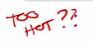 TOO
HOT ??